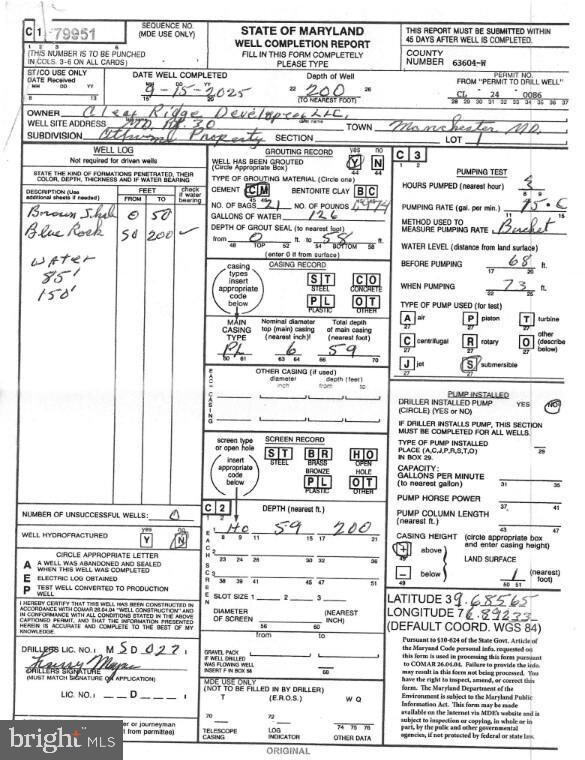 C 1 79951
SEQUENCE NO. (MDE USE ONLY)
(THIS NUMBER IS TO BE PUNCHED
IN COLS. 3-6 ON ALL CARDS)
STATE OF MARYLAND
WELL COMPLETION REPORT
FILL IN THIS FORM COMPLETELY
PLEASE TYPE
THIS REPORT MUST BE SUBMITTED WITHIN
45 DAYS AFTER WELL IS COMPLETED.
COUNTY
NUMBER 63604-W
ST/CO USE ONLY
DATE Received
DATE WELL COMPLETED
9-15-2025
Depth of Well
22 200 26
(TO NEAREST FOOT)
PERMIT NO.
FROM "PERMIT TO DRILL WELL"
CL 24 0086
28 29 30 31 32 33 34 35 36 37
OWNER Clear Ridge LLC.
WELL SITE ADDRESS 30 TOWN Manchester MD.
SUBDIVISION Property SECTION LOT 1
WELL LOG
Not required for driven wells
STATE THE KIND OF FORMATIONS PENETRATED, THEIR
COLOR, DEPTH, THICKNESS AND IF WATER BEARING
DESCRIPTION (Use additional sheets if needed) FEET FROM TO check if water bearing
Brown 0 50
Blue Rock 50 200 ✓
Water
85'
150'
NUMBER OF UNSUCCESSFUL WELLS: 0
WELL HYDROFRACTURED yes Y no N
CIRCLE APPROPRIATE LETTER
A A WELL WAS ABANDONED AND SEALED
WHEN THIS WELL WAS COMPLETED
E ELECTRIC LOG OBTAINED
P TEST WELL CONVERTED TO PRODUCTION
WELL
I HEREBY CERTIFY THAT THIS WELL HAS BEEN CONSTRUCTED IN
ACCORDANCE WITH COMAR 26.04.04 "WELL CONSTRUCTION" AND
IN CONFORMANCE WITH ALL CONDITIONS STATED IN THE ABOVE
CAPTIONED PERMIT, AND THAT THE INFORMATION PRESENTED
HEREIN IS ACCURATE AND COMPLETE TO THE BEST OF MY
KNOWLEDGE.
DRILLERS LIC. NO. M S D 027
DRILLERS SIGNATURE
(MUST MATCH SIGNATURE ON APPLICATION)
LIC. NO. D
er or journeyman
t from permittee)
GROUTING RECORD yes no
WELL HAS BEEN GROUTED
(Circle Appropriate Box) Y N
44 44
TYPE OF GROUTING MATERIAL (Circle one)
CEMENT C M BENTONITE CLAY B C
NO. OF BAGS 21 NO. OF POUNDS
GALLONS OF WATER 126
DEPTH OF GROUT SEAL (to nearest foot)
from 0 ft. to 58 ft.
48 TOP 52 54 BOTTOM 58
(enter 0 if from surface)
CASING RECORD
casing types insert appropriate code below
S T STEEL
C O CONCRETE
P L PLASTIC
O T OTHER
MAIN CASING TYPE
Nominal diameter top (main) casing (nearest inch)!
Total depth of main casing (nearest foot)
PL 6 59
60 61 63 64 66 70
OTHER CASING (if used)
diameter inch depth (feet) from to
SCREEN RECORD
screen type or open hole
insert appropriate code below
S T STEEL
B R BRASS BRONZE
H O OPEN HOLE
P L PLASTIC
O T OTHER
C 2 DEPTH (nearest ft.)
EACH SCREEN
1 HO 59 200
8 9 11 15 17 21
2
23 24 26 30 32 36
3
38 39 41 45 47 51
SLOT SIZE 1 2 3
DIAMETER OF SCREEN (NEAREST INCH)
56 60
from to
GRAVEL PACK
IF WELL DRILLED
WAS FLOWING WELL
INSERT F IN BOX 68 68
MDE USE ONLY
(NOT TO BE FILLED IN BY DRILLER)
T (E.R.O.S.) W Q
70 72 74 75 76
TELESCOPE CASING LOG INDICATOR OTHER DATA
C 3
PUMPING TEST
HOURS PUMPED (nearest hour) 3
8 9
PUMPING RATE (gal. per min.)
11 15
METHOD USED TO
MEASURE PUMPING RATE Bucket
WATER LEVEL (distance from land surface)
BEFORE PUMPING 68 ft.
17 20
WHEN PUMPING 73 ft.
22 25
TYPE OF PUMP USED (for test)
A air P piston T turbine
C centrifugal R rotary O other (describe below)
J jet S submersible
PUMP INSTALLED
DRILLER INSTALLED PUMP YES NO
(CIRCLE) (YES or NO)
IF DRILLER INSTALLS PUMP, THIS SECTION
MUST BE COMPLETED FOR ALL WELLS.
TYPE OF PUMP INSTALLED
PLACE (A,C,J,P,R,S,T,O)
IN BOX 29. 29
CAPACITY:
GALLONS PER MINUTE
(to nearest gallon) 31 35
PUMP HORSE POWER 37 41
PUMP COLUMN LENGTH
(nearest ft.) 43 47
CASING HEIGHT (circle appropriate box
and enter casing height)
+ above
LAND SURFACE
− below (nearest foot)
49 50 51
LATITUDE 39.68565
LONGITUDE 76.89233
(DEFAULT COORD. WGS 84)
Pursuant to §10-624 of the State Govt. Article of
the Maryland Code personal info. requested on
this form is used in processing this form pursuant
to COMAR 26.04.04. Failure to provide the info.
may result in this form not being processed. You
have the right to inspect, amend, or correct this
form. The Maryland Department of the
Environment is subject to the Maryland Public
Information Act. This form may be made
available on the Internet via MDE's website and is
subject to inspection or copying, in whole or in
part, by the public and other governmental
agencies, if not protected by federal or state law.
ORIGINAL
bright MLS